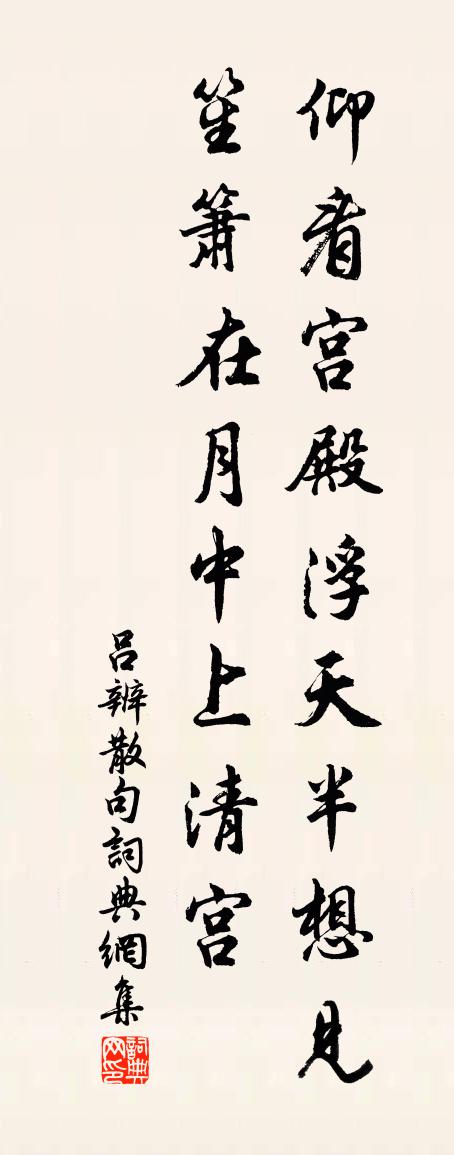 仰看宫殿浮天半想見
笙簫在月中上清宫
吕辨散句詞典網集
詞典网印